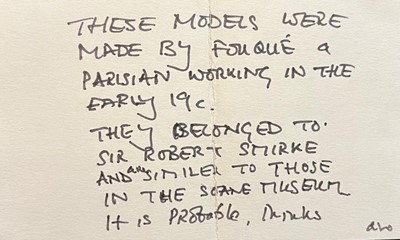 THESE MODELS WERE
MADE BY FOUQUÉ a
PARISIAN WORKING IN THE
EARLY 19c.
THEY BELONGED TO
SIR ROBERT SMIRKE
AND are SIMILER TO THOSE
IN THE SOANE MUSEUM
It is PRObable, thinks